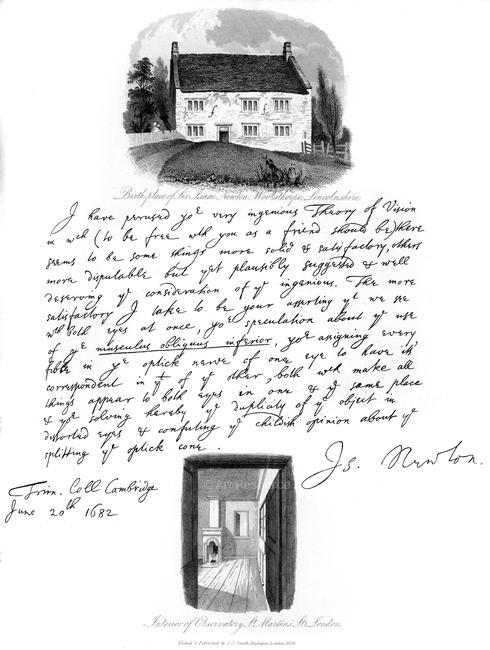 Birthplace of Sir Isaac Newton, Woolsthorpe, Lincolnshire.
I have perused yor very ingenious Theory of Vision
in wch (to be free with you as a friend should be) there
seems to be some things more solid & satisfactory, others
more disputable but yet plausibly suggested & well
deserving ye consideration of ye ingenious. The more
satisfactory I take to be your asserting yt we see
wth both eyes at once, yor speculation about ye use
of ye musculus obliquus inferior, yor assigning every
fibre in ye optick nerve of one eye to have its
correspondent in yt of ye other, both wch make all
things appear to both eyes in one & ye same place
& yor solving hereby ye duplicity of ye object in
distorted eyes & confuting ye childish opinion about ye
splitting ye optick cone.
Is. Newton.
Trin. Coll Cambridge
June 20th 1682
© Art Resource
Interior of Observatory, St. Martin's St. London
Etched & Published by C. J. Smith, Engraver, London